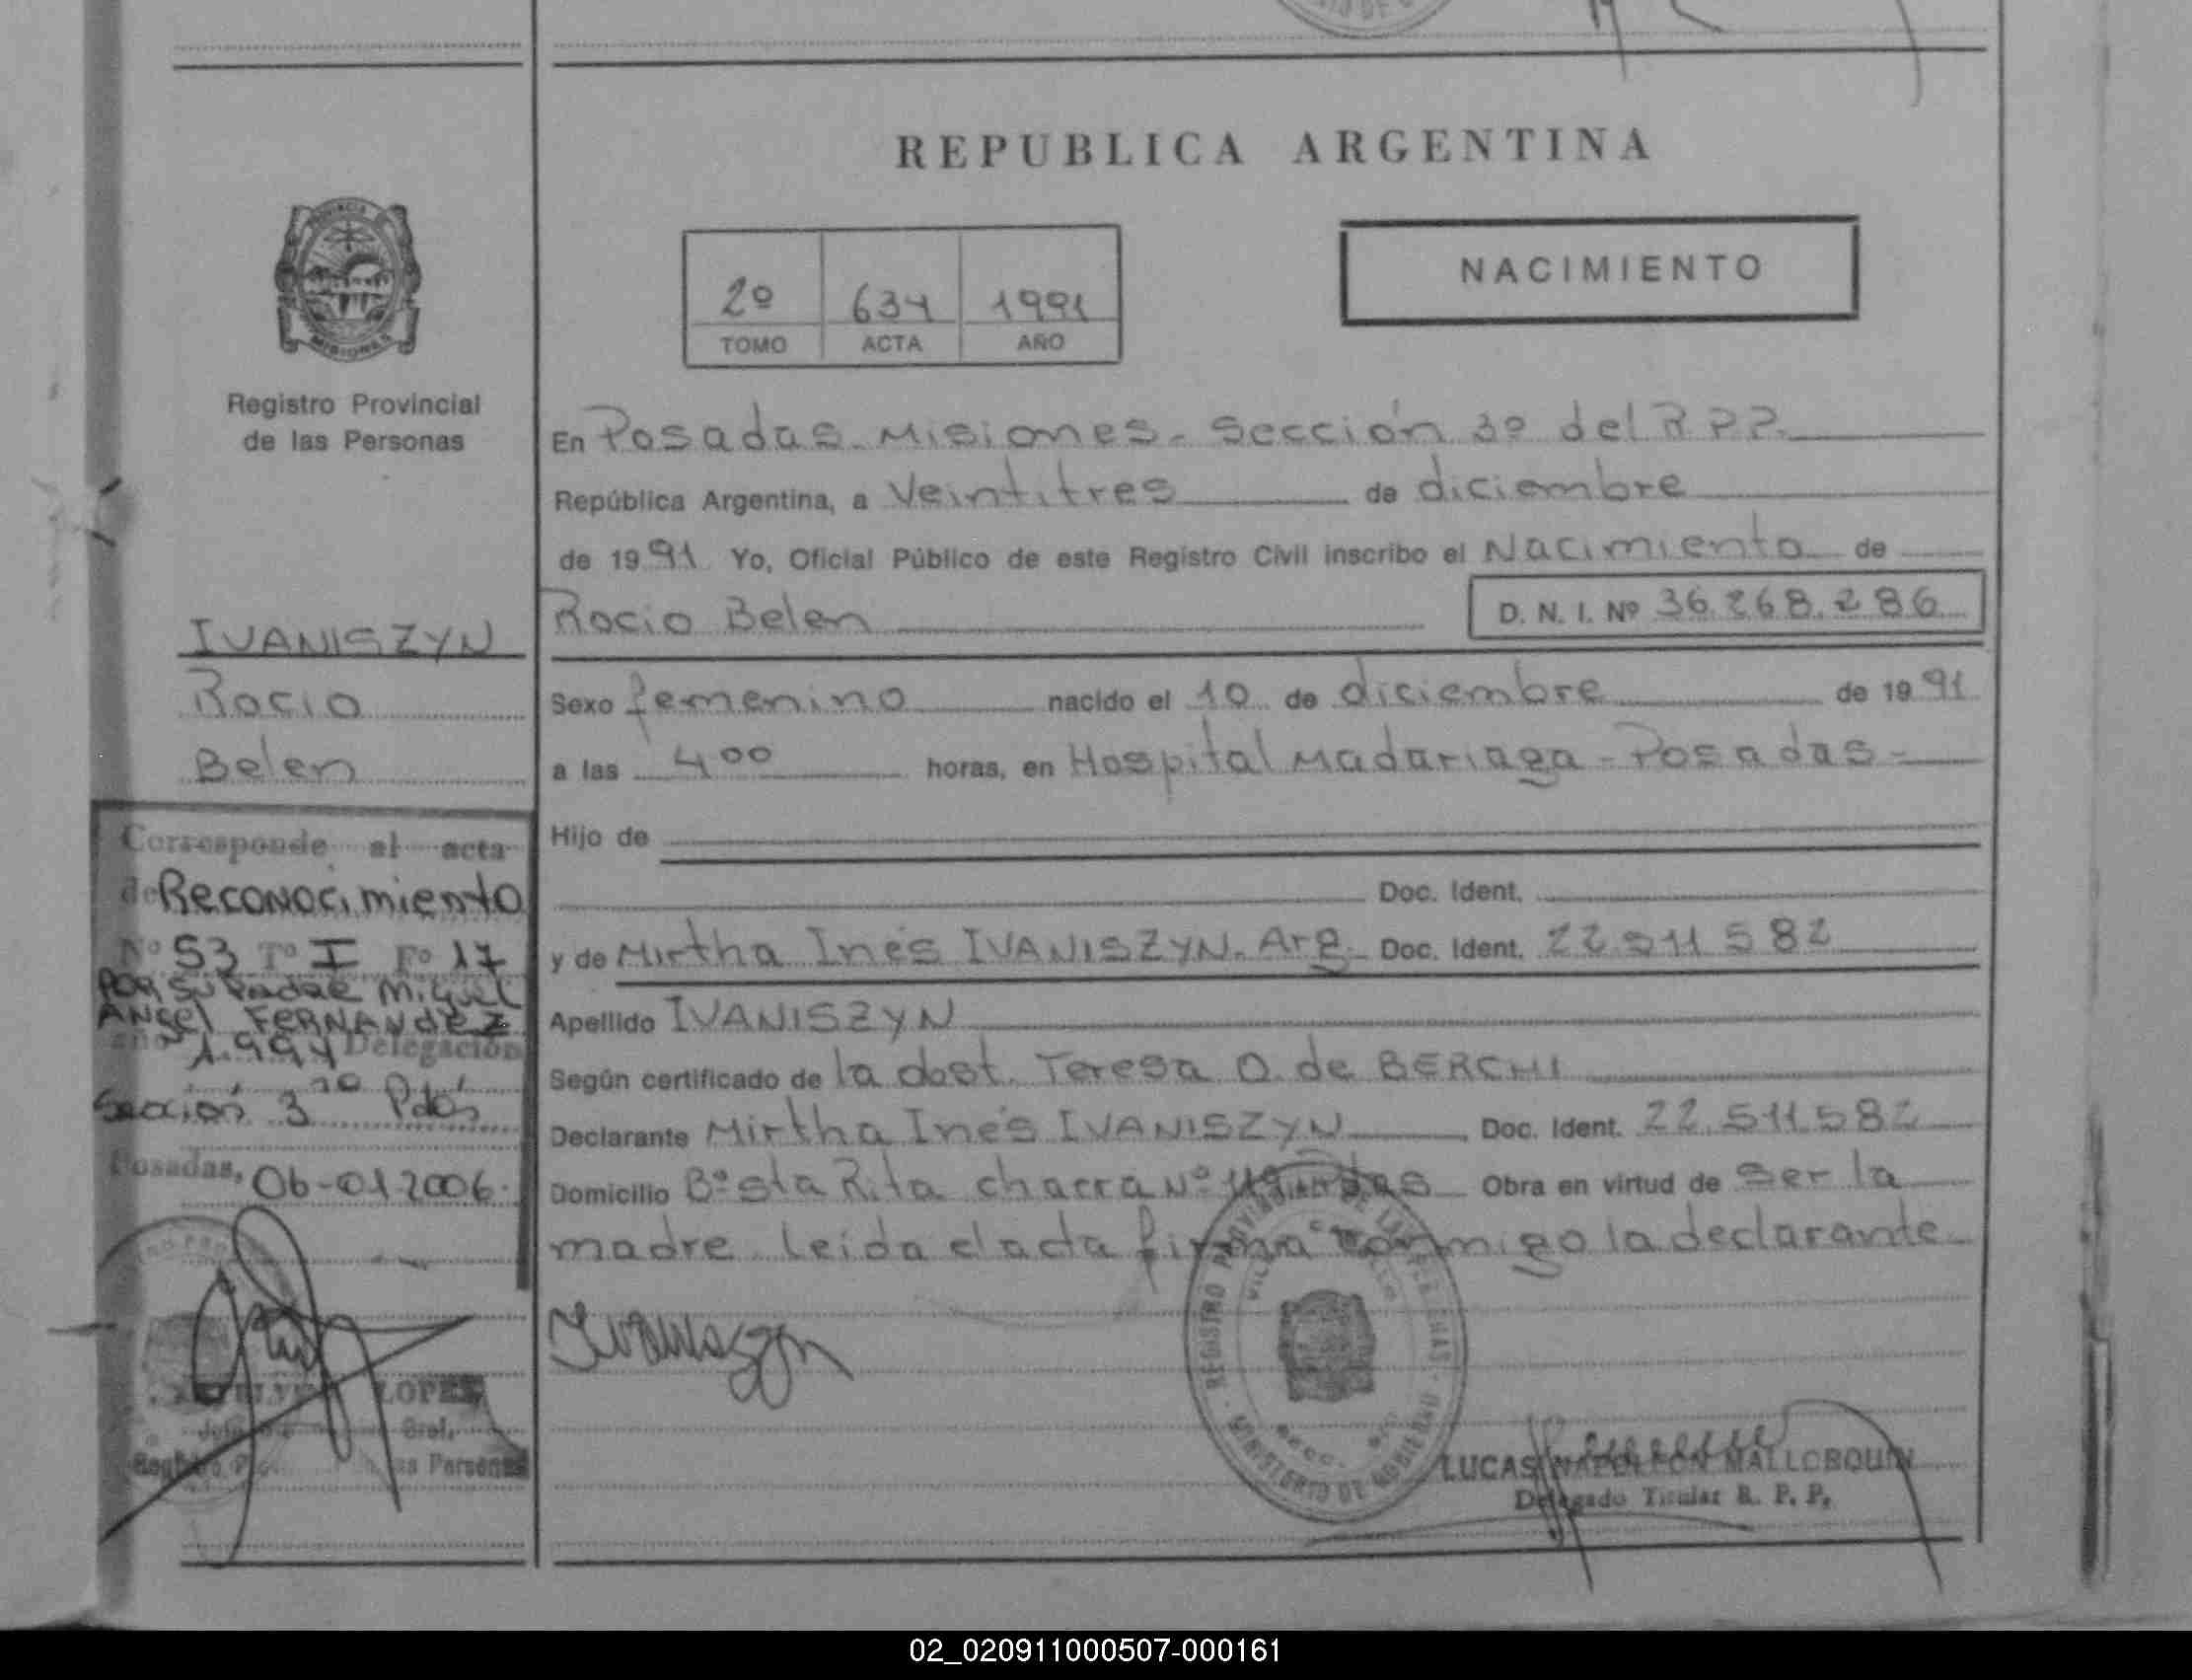 REPUBLICA ARGENTINA
NACIMIENTO
2º 634 1991
TOMO ACTA AÑO
PROVINCIA DE
MISIONES
Registro Provincial
de las Personas
IVANISZYN
Rocio
Belen
Corresponde al acta
de Reconocimiento
Nº 53 Tº I Fº 17
POR SU Padre Miguel
Angel FERNANdEZ
año 1.994 Delegación
Sección 3ª Pdas
Posadas, 06-01-2006.
LOPEZ
Gral.
las Personas
En Posadas. Misiones. Sección 3º del R P P.
República Argentina, a Veintitres de diciembre
de 1991 Yo, Oficial Público de este Registro Civil inscribo el Nacimiento de
Rocio Belen D. N. I. Nº 36.268.286
Sexo femenino nacido el 10 de diciembre de 1991
a las 4 00 horas, en Hospital Madariaga - Posadas -
Hijo de
Doc. Ident.
y de Mirtha Inés IVANISZYN. Arg. Doc. Ident. 22.511.582
Apellido IVANISZYN
Según certificado de la obst. Teresa O. de BERCHI
Declarante Mirtha Inés IVANISZYN Doc. Ident. 22.511.582
Domicilio Bº Sta Rita chacra Nº Obra en virtud de ser la
madre leida el acta firma conmigo la declarante
Ivaniszyn
REGISTRO PROVINCIAL DE LAS PERSONAS
MINISTERIO DE GOBIERNO
LUCAS NAPOLEON MALLORQUIN
Delegado Titular R. P. P.
02_020911000507-000161